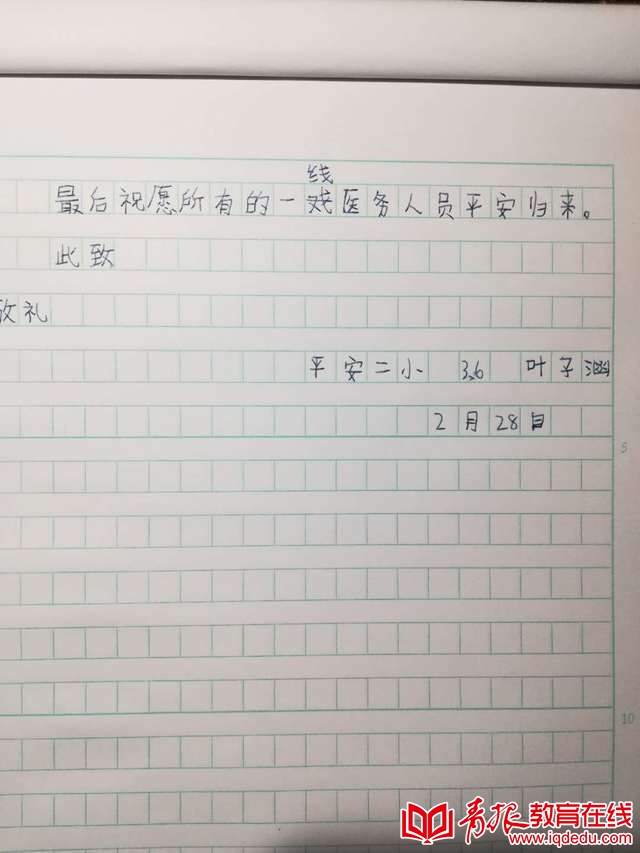 线
最后祝愿所有的一戏医务人员平安归来。
此致
敬礼
平安二小 3.6 叶子涵
2月28日
5
10
青报教育在线
www.iqdedu.com